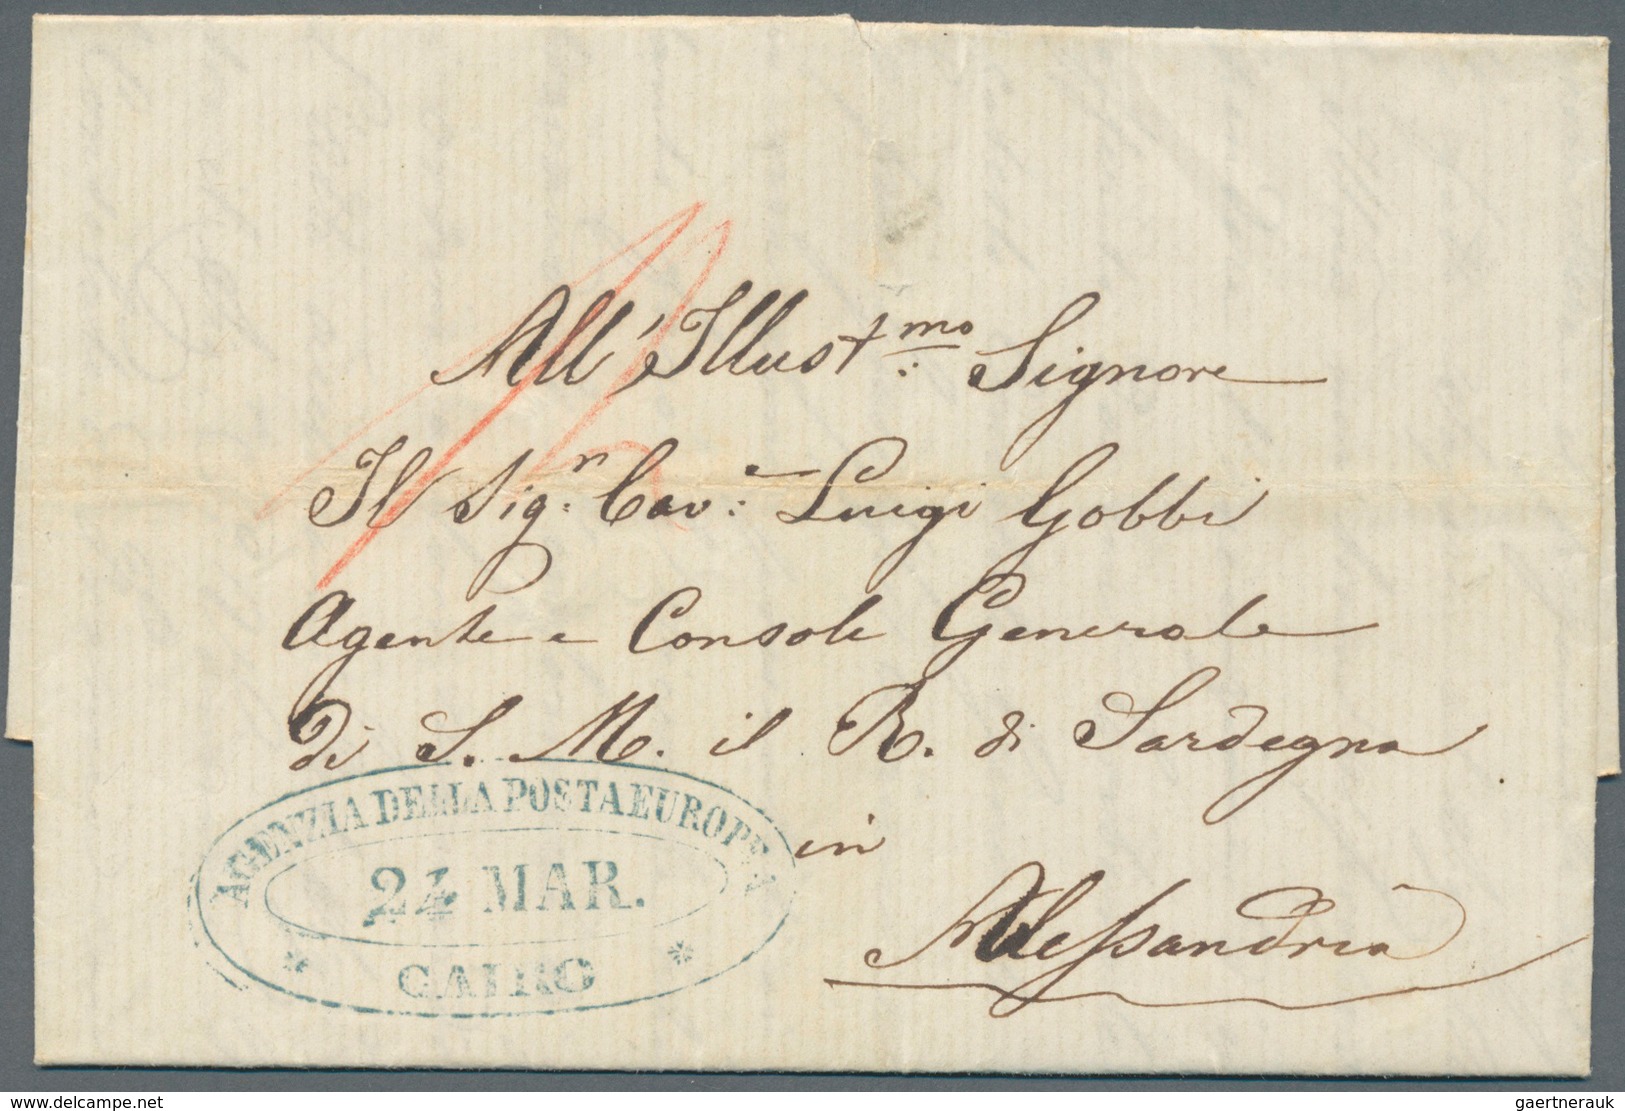 All'Illust.mo Signore
Il Sig.n Cav.e Luigi Gobbi
Agente e Console Generale
di S. M. il R. di Sardegna
in
Alessandria
AGENZIA DELLA POSTA EUROPEA
24 MAR.
CAIRO
www.delcampe.net
gaertnerauk